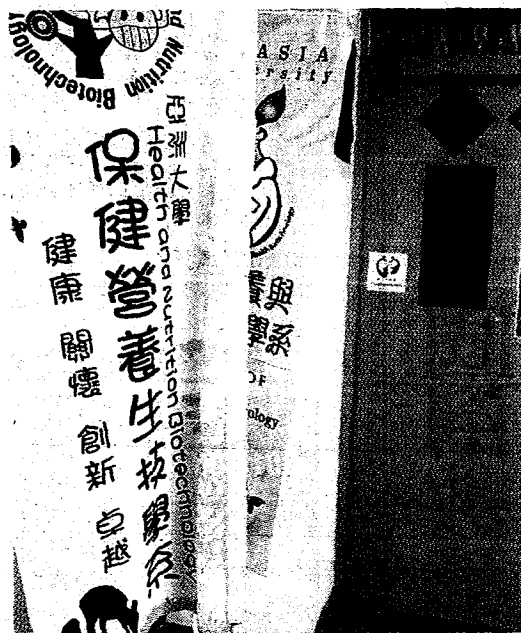 Nutrition Biotechnology
亞洲大學
Health and Nutrition Biotechnology
保健營養生技學系
健康 關懷 創新 卓越
ASIA
養與
學系
OF